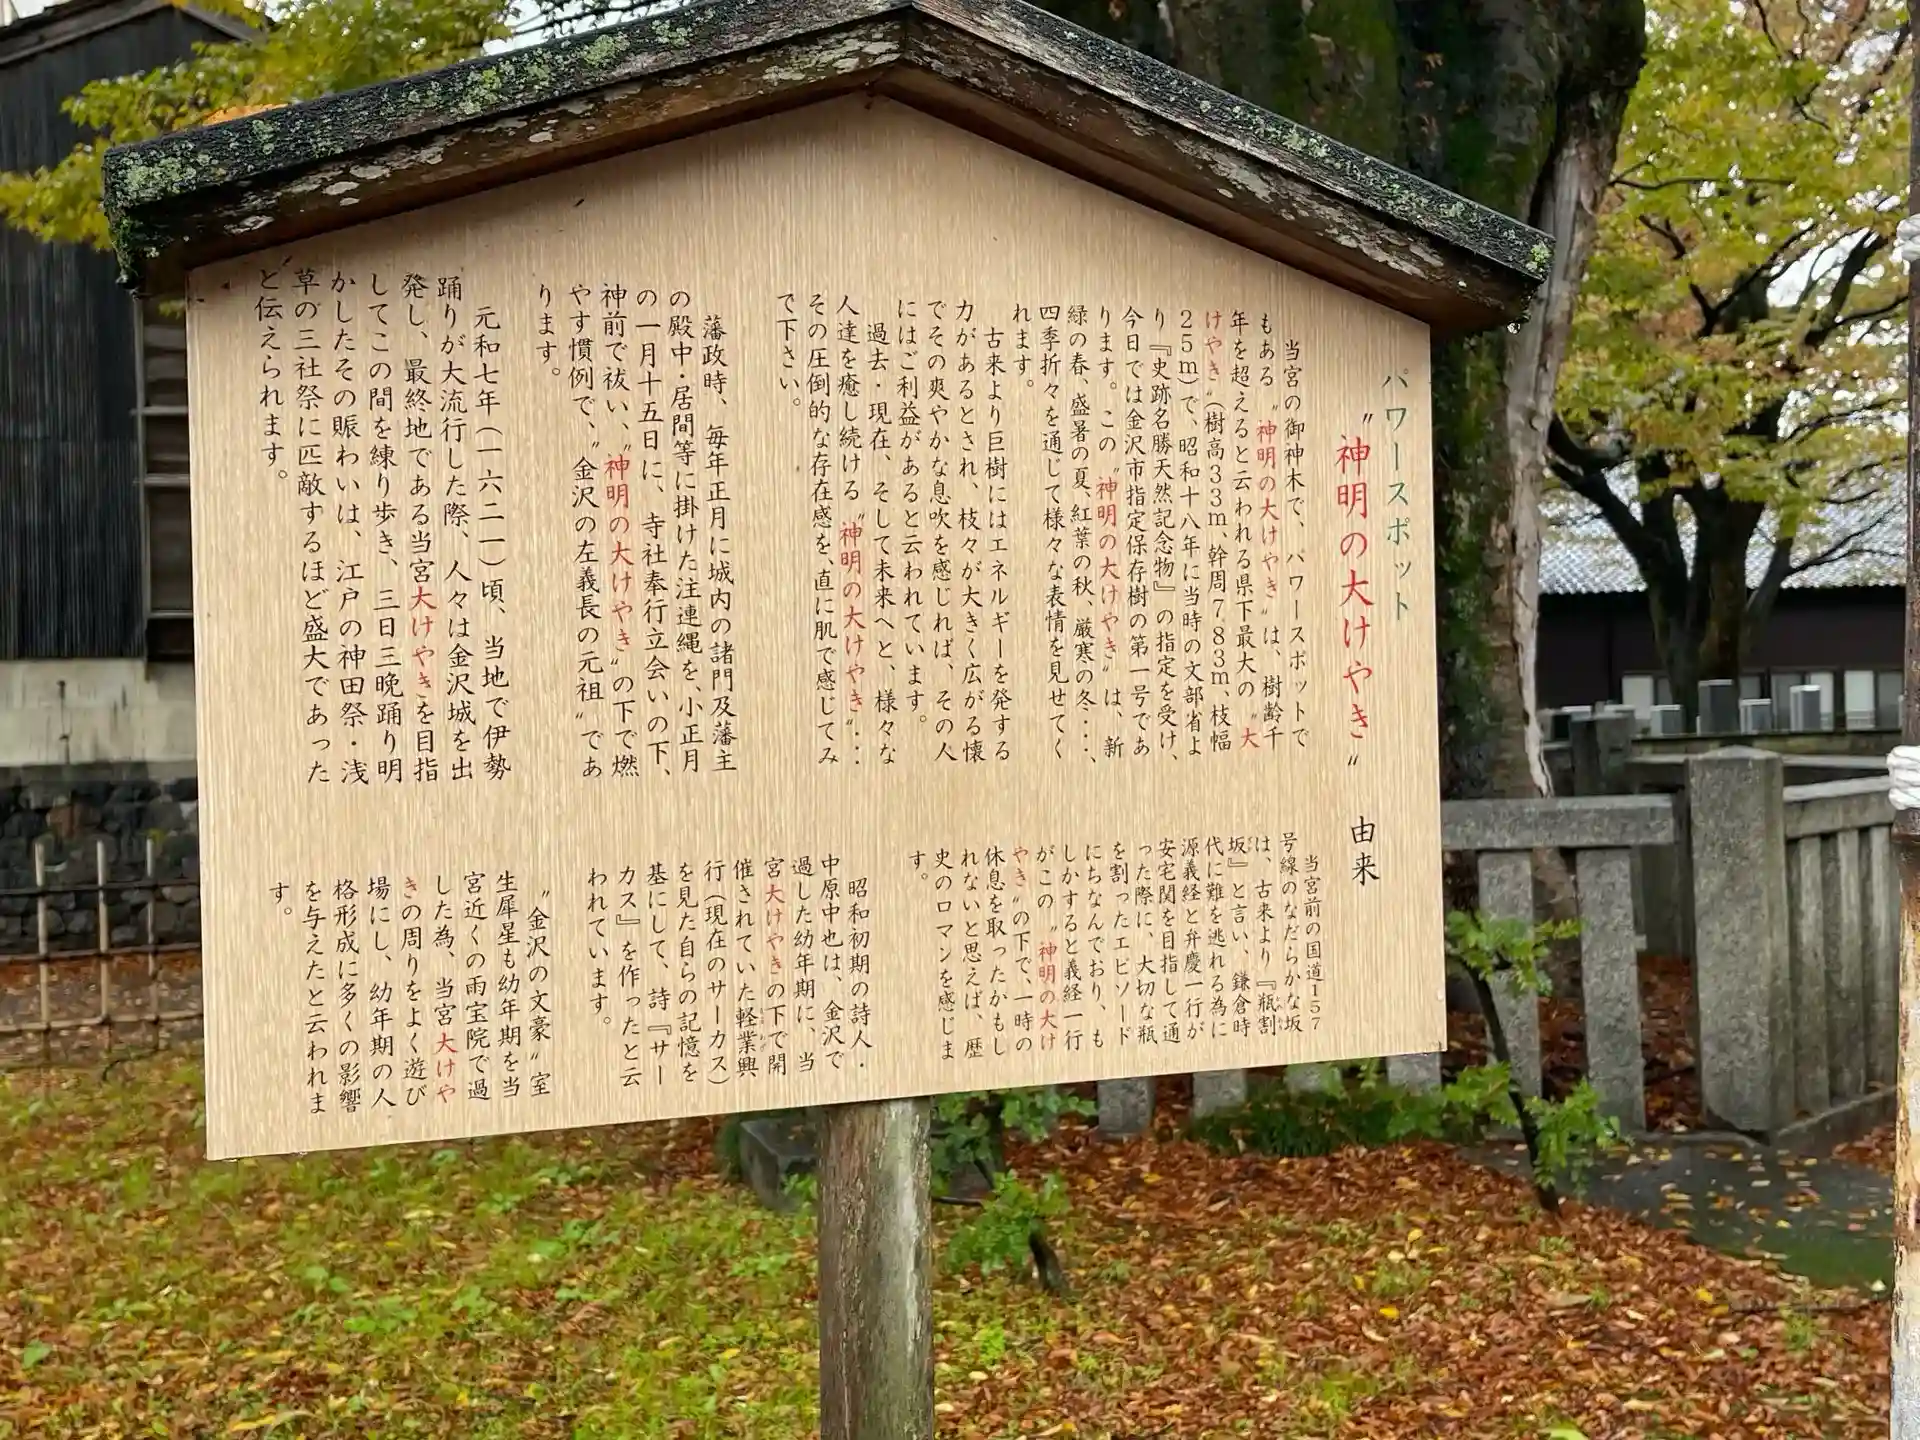 パワースポット
〝神明の大けやき〟 由来
当宮の御神木で、パワースポットで
もある〝神明の大けやき〟は、樹齢千
年を超えると云われる県下最大の〝大
けやき〟(樹高33m、幹周7.83m、枝幅
25m)で、昭和十八年に当時の文部省よ
り『史跡名勝天然記念物』の指定を受け、
今日では金沢市指定保存樹の第一号であ
ります。この〝神明の大けやき〟は、新
緑の春、盛暑の夏、紅葉の秋、厳寒の冬・・・、
四季折々を通じて様々な表情を見せてく
れます。
古来より巨樹にはエネルギーを発する
力があるとされ、枝々が大きく広がる懐
でその爽やかな息吹を感じれば、その人
にはご利益があると云われています。
過去・現在、そして未来へと、様々な
人達を癒し続ける〝神明の大けやき〟・・・
その圧倒的な存在感を、直に肌で感じてみ
て下さい。
藩政時、毎年正月に城内の諸門及藩主
の殿中・居間等に掛けた注連縄を、小正月
の一月十五日に、寺社奉行立会いの下、
神前で祓い、〝神明の大けやき〟の下で燃
やす慣例で、〝金沢の左義長の元祖〟であ
ります。
元和七年(一六二一)頃、当地で伊勢
踊りが大流行した際、人々は金沢城を出
発し、最終地である当宮大けやきを目指
してこの間を練り歩き、三日三晩踊り明
かしたその賑わいは、江戸の神田祭・浅
草の三社祭に匹敵するほど盛大であった
と伝えられます。
当宮前の国道157
号線のなだらかな坂
は、古来より『瓶割
坂』と言い、鎌倉時
代に難を逃れる為に
源義経と弁慶一行が
安宅関を目指して通
った際に、大切な瓶
を割ったエピソード
にちなんでおり、も
しかすると義経一行
がこの〝神明の大け
やき〟の下で、一時の
休息を取ったかもし
れないと思えば、歴
史のロマンを感じま
す。
昭和初期の詩人・
中原中也は、金沢で
過した幼年期に、当
宮大けやきの下で開
催されていた軽業興
行(現在のサーカス)
を見た自らの記憶を
基にして、詩『サー
カス』を作ったと云
われています。
〝金沢の文豪〟室
生犀星も幼年期を当
宮近くの雨宝院で過
した為、当宮大けや
きの周りをよく遊び
場にし、幼年期の人
格形成に多くの影響
を与えたと云われま
す。